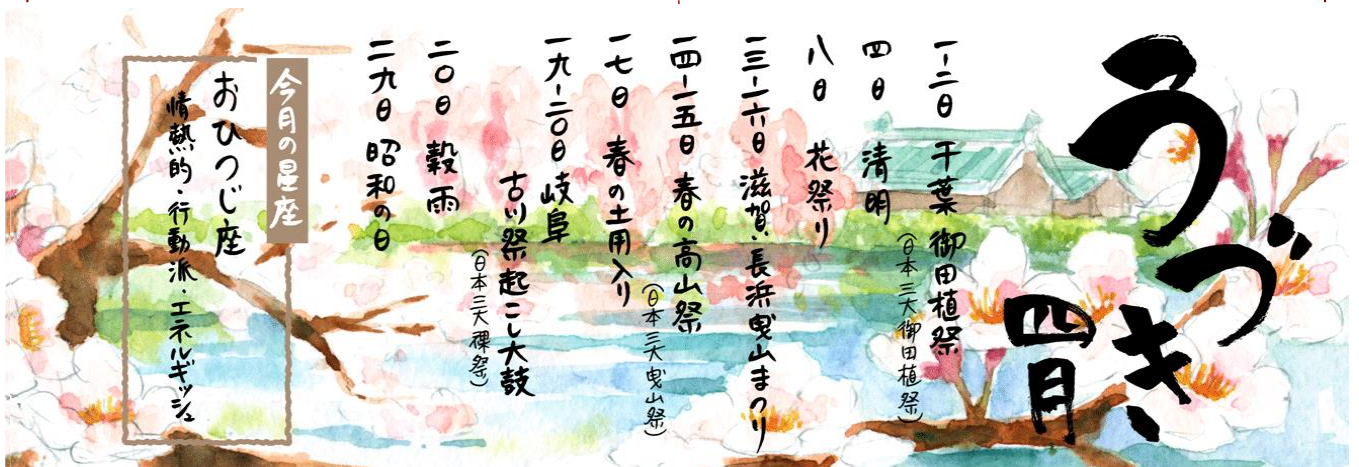 うづき
四月
一-二日 千葉 御田植祭
(日本三大御田植祭)
四日 清明
八日 花祭り
一三-一六日 滋賀・長浜曳山まつり
一四-一五日 春の高山祭
(日本三大曳山祭)
一七日 春の土用入り
一九-二〇日 岐阜
古川祭起こし太鼓
(日本三大裸祭)
二〇日 穀雨
二九日 昭和の日
今月の星座
おひつじ座
情熱的・行動派・エネルギッシュ